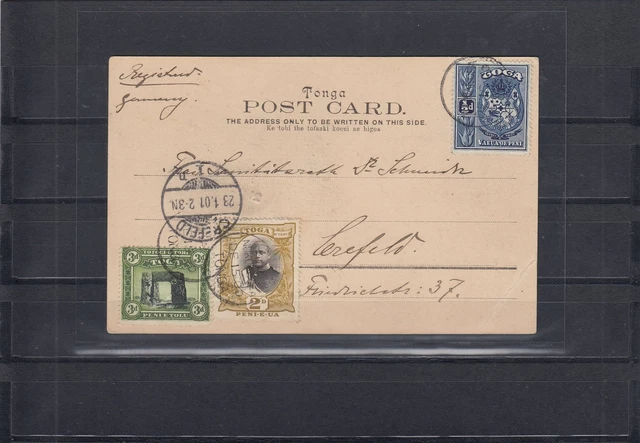 Registered.
Germany.
TOGA
½d
VAEUA OE PENI
Tonga
POST CARD.
THE ADDRESS ONLY TO BE WRITTEN ON THIS SIDE.
Ke tohi ihe tafaaki koeni ae higoa
Frau Sanitätsrath Dr Schneider
Crefeld.
Friedrichstr: 37.
CREFELD
23 1.01 2-3N.
3d
TOGA
3d
3d
PENI E TOLU
3d
TOGA
2D
PENI-E-UA